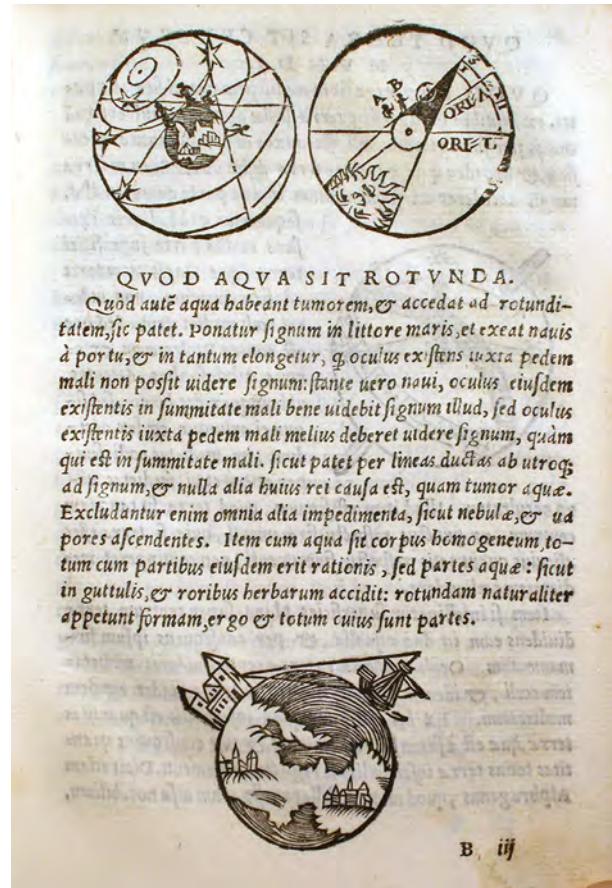 A B
ORIẼ A
ORIẼ L
QVOD AQVA SIT ROTVNDA.
Quòd autẽ aqua habeant tumorem, & accedat ad rotundi-
tatem, sic patet. Ponatur signum in littore maris, et exeat nauis
à portu, & in tantum elongetur, q̃ oculus existens iuxta pedem
mali non possit uidere signum: stante uero naui, oculus eiusdem
existentis in summitate mali bene uidebit signum illud, sed oculus
existentis iuxta pedem mali melius deberet uidere signum, quàm
qui est in summitate mali. sicut patet per lineas ductas ab utroq;
ad signum, & nulla alia huius rei causa est, quam tumor aquæ.
Excludantur enim omnia alia impedimenta, sicut nebulæ, & ua
pores ascendentes. Item cum aqua sit corpus homogeneum, to-
tum cum partibus eiusdem erit rationis, sed partes aquæ: sicut
in guttulis, & roribus herbarum accidit: rotundam naturaliter
appetunt formam, ergo & totum cuius sunt partes.
B iij